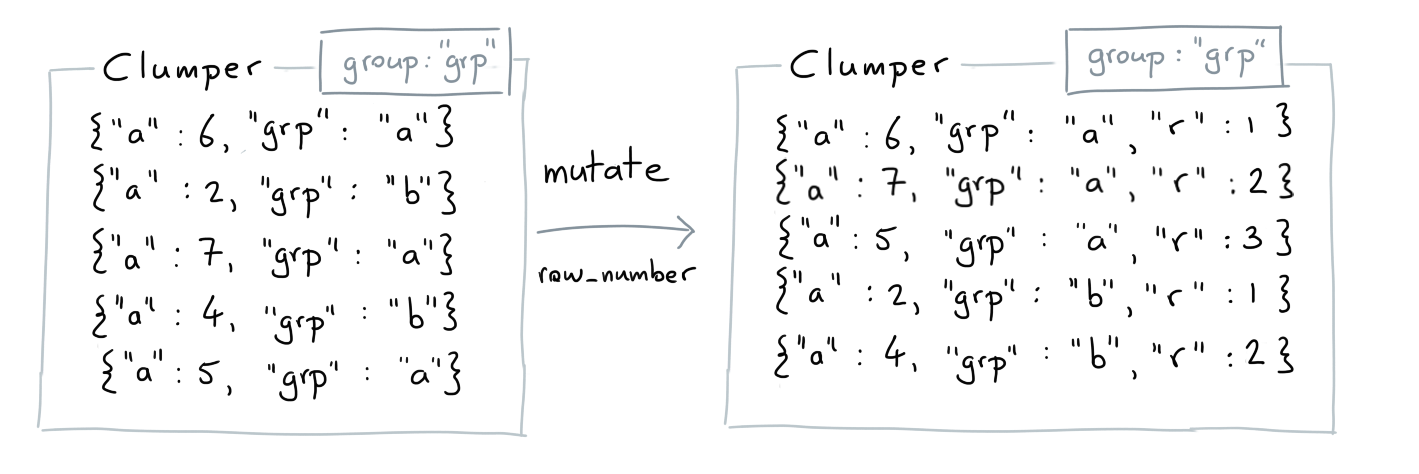 Clumper group: "grp"
{"a" : 6, "grp" : "a"}
{"a" : 2, "grp" : "b"}
{"a" : 7, "grp" : "a"}
{"a" : 4, "grp" : "b"}
{"a" : 5, "grp" : "a"}
mutate
row_number
Clumper group: "grp"
{"a" : 6, "grp" : "a", "r" : 1}
{"a" : 7, "grp" : "a", "r" : 2}
{"a" : 5, "grp" : "a", "r" : 3}
{"a" : 2, "grp" : "b", "r" : 1}
{"a" : 4, "grp" : "b", "r" : 2}